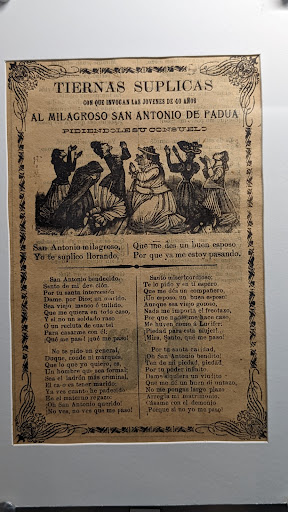 TIERNAS SUPLICAS
CON QUE INVOCAN LAS JOVENES DE 40 AÑOS
AL MILAGROSO SAN ANTONIO DE PADUA
PIDIENDOLE SU CONSUELO
San Antonio milagroso,
Yo te suplico llorando,
Que me des un buen esposo
Por que ya me estoy pasando.
San Antonio bendecido,
Santo de mi devoción,
Por tu santa intercesión,
Dame, por Dios, un marido,
Sea viejo, manco ó tullido,
Que me quiera en todo caso,
Y si no un soldado raso
O un recluta de cuartel
Para casarme con él
¡Qué me paso! ¡qué me paso!
No te pido un general,
Duque, conde ni marqués,
Que lo que yo quiero es
Un hombre que sea formal,
Sea el ladrón más criminal
El ca
tener marido;
Ya ves cuanto he padecido
En el materno regazo:
¡Oh San Antonio querido!
No ves, no ves que me paso!
Santo misericordioso;
Te lo pido y en ti espero
Que me des un compañero,
Un esposo, un buen esposo
Aunque sea viejo gotoso,
Nada me importa el fracaso,
Por que si no me hace caso,
Me hurto como Lucifer
¡Piedad para esta mujer!
¡Mira, Santo, que me paso!
Por tu santa caridad,
¡Oh San Antonio bendito!
Ten de mi piedad, piedad!
Por tu poder infinito
Dame siquiera un viudito
Que me dé un buen
No me pongas largo plazo
Arregla mi matrimonio,
Cásame con el demonio
¡Porque si no yo me paso!